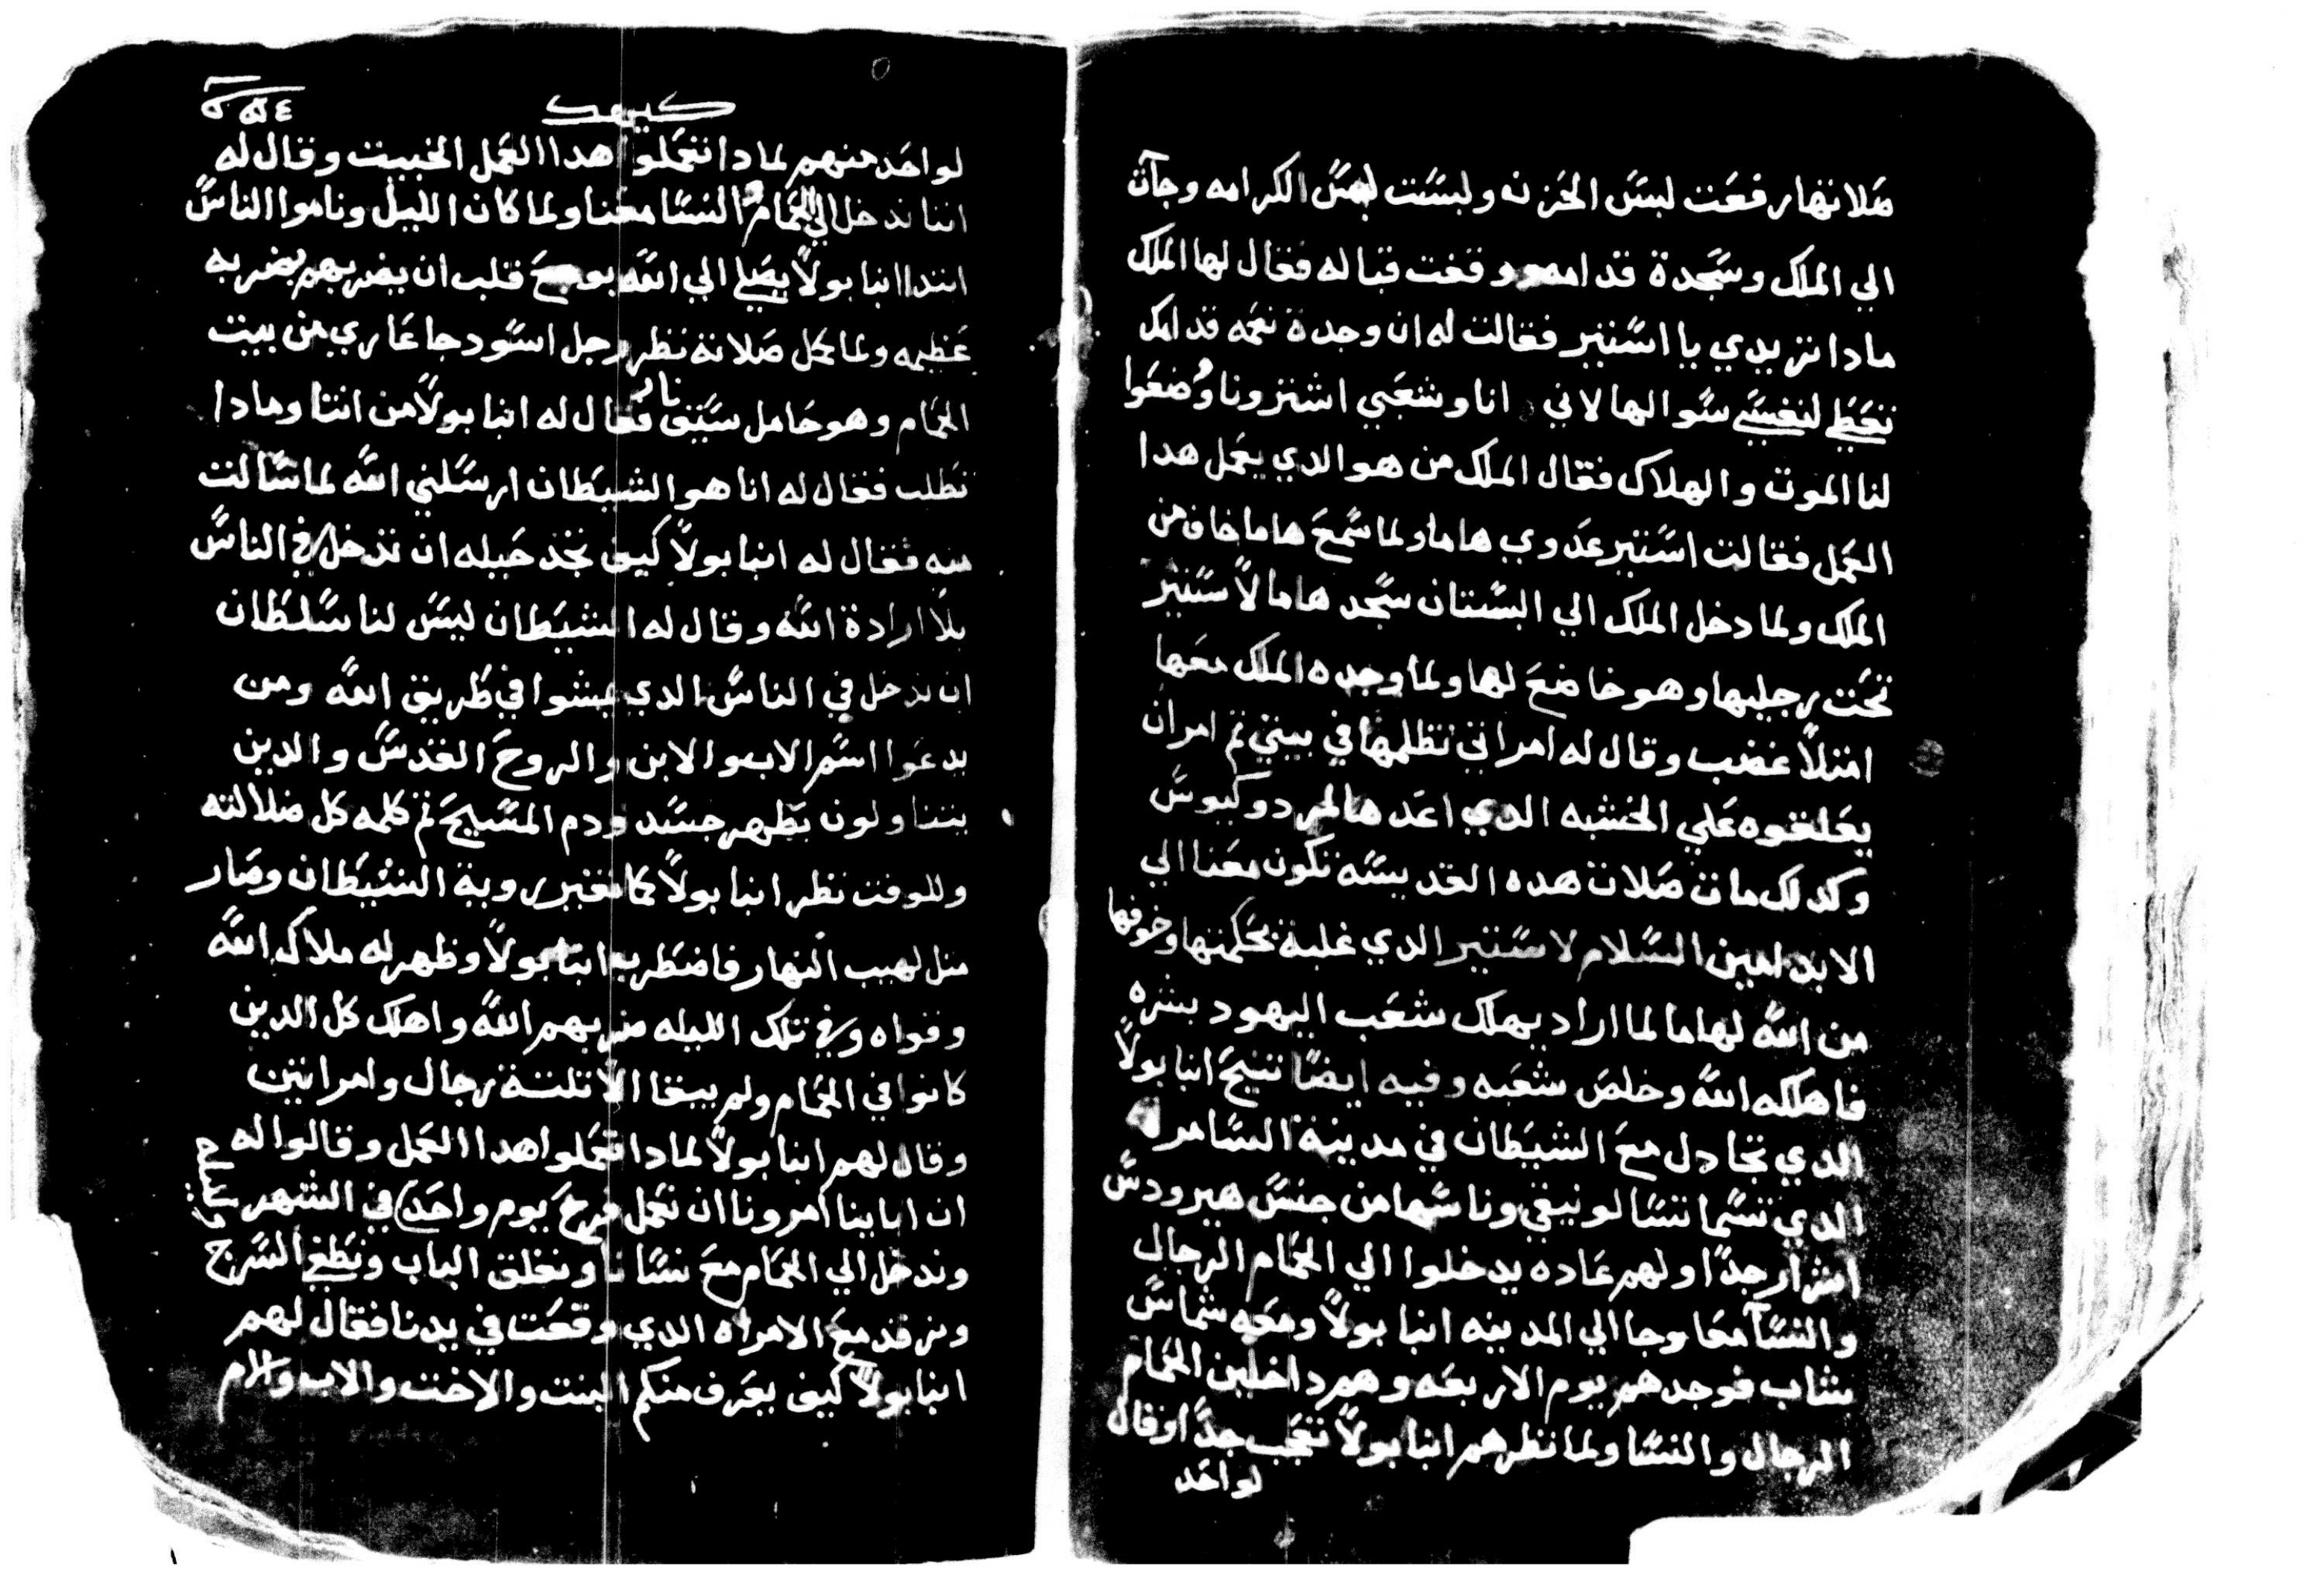 صلاتها رفعت لبس الحزنه ولبست لبس الكرامه وجآت
الي الملك وسجدة قدامه ووقفت قباله فقال لها الملك
مادا تريدي يا استير فقالت له ان وجدة نعمه قدامك
تعطي لنفسي سوالها لاني انا وشعبي اشترونا وضعوا
لنا الموت والهلاك فقال الملك من هو الدي يعمل هدا
العمل فقالت استير عدوي هاما ولما سمع هاما خاف من
الملك ولما دخل الملك الي البستان سجد هاما لاستير
تحت رجليها وهو خاضع لها ولما وجده الملك معها
امتلا غضب وقال له امراتي تظلمها في بيتي تم امر ان
يعلقوه علي الخشبه الدي اعدها لمردوكيوس
وكدلك ماتت صلاة هده القديسه تكون معنا الي
الابد امين السلام لاستير الدي غلبة بحكمتها وخوفها
من الله لهاما لما اراد يهلك شعب اليهود بشره
فاهلكه الله وخلص شعبه وفيه ايضا تنيح انبا بولا
الدي تجادل مع الشيطان في مدينة السامره
الدي تسما تسالونيقي وناسها من جنس هيرودس
اشرار جدا ولهم عاده يدخلوا الي الحمام الرجال
والنسآ معا وجا الي المدينه انبا بولا ومعه شماس
شاب فوجدهم يوم الاربعه وهم داخلين الحمام
الرجال والنسا ولما نظرهم انبا بولا تعجب جدا وقال
لواحد
كيهك
لواحد منهم لمادا تعملوا هدا العمل الخبيت وقال له
اننا ندخل الي الحمام والنسا معنا ولما كان الليل وناموا الناس
ابتدا انبا بولا يصلي الي الله بوجع قلب ان يضربهم بضربه
عظيمه ولما كمل صلاته نظر رجل اسود جا عاري من بيت
الحمام وهو حامل سيف نار فقال له انبا بولا من انتا ومادا
تطلب فقال له انا هو الشيطان ارسلني الله لما سالت
منه فقال له انبا بولا كيف تجد حيله ان تدخل في الناس
بلا ارادة الله وقال له الشيطان ليس لنا سلطان
ان ندخل في الناس الدي يمشوا في طريق الله ومن
يدعوا اسم الاب والابن والروح القدس والدين
يتناولون بطهر جسد ودم المسيح تم كلمه كل ضلالته
وللوقت نظر انبا بولا كما تغير روية الشيطان وصار
متل لهيب النهار فاضطرب انبا بولا وظهر له ملاك الله
وقواه وفي تلك الليله ضربهم الله واهلك كل الدين
كانوا في الحمام ولم يبقا الا تلتة رجال وامراتين
وقال لهم انبا بولا لمادا تعملوا هدا العمل وقالوا له
ان اباينا امرونا ان نعمل فرح يوم واحد في الشهر
وندخل الي الحمام مع نسانا ونغلق الباب ونطفي السرج
ونرقد مع الامراه الدي وقعت في يدنا فقال لهم
انبا بولا كيف يعرف منكم البنت والاخت والاب والام